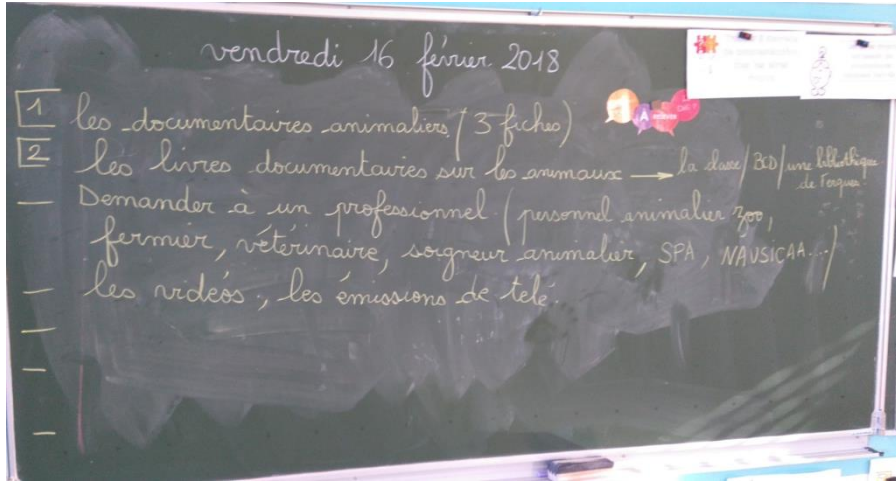 vendredi 16 février 2018
1 les documentaires animaliers (3 fiches)
2 les livres documentaires sur les animaux → la classe / BCD / une bibliothèque
de Ferques.
— Demander à un professionnel (personnel animalier zoo,
fermier, vétérinaire, soigneur animalier, SPA, NAUSICAA....)
— les vidéos, les émissions de télé.
—
—
—